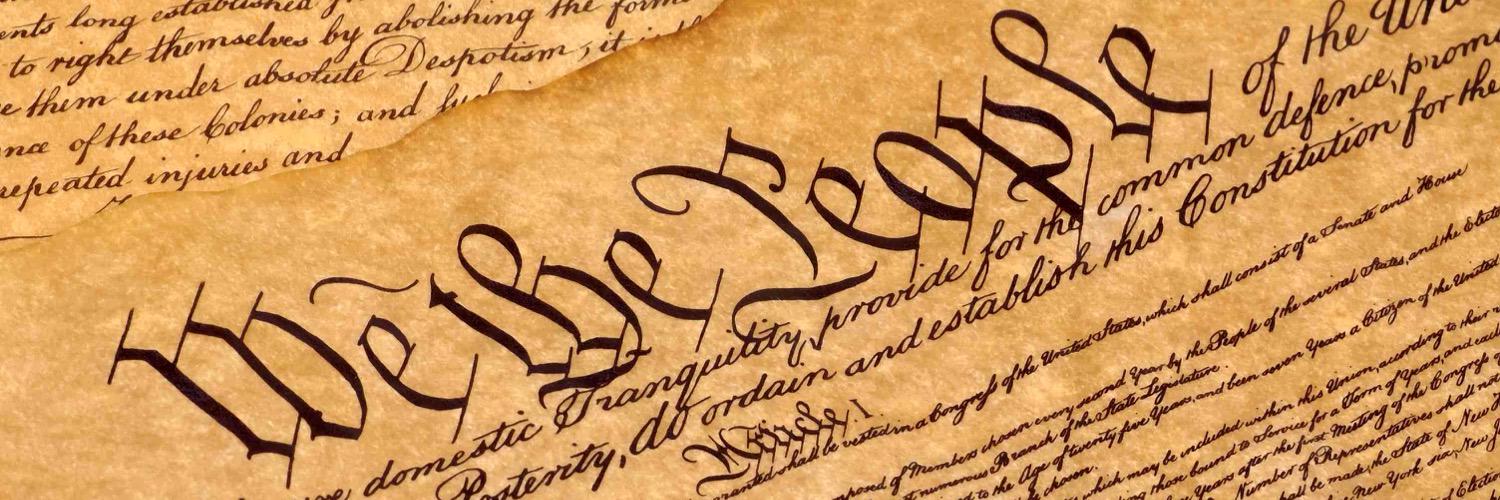 ents long established
to right themselves by abolishing the forms
them under absolute Despotism, it is
of these Colonies; and such
repeated injuries and
We the People of the Uni
domestic Tranquility, provide for the common defence, promo
Posterity, do ordain and establish this Constitution for the
Article I.
granted shall be vested in a Congress of the United States, which shall consist of a Senate and House
of Members chosen every second Year by the People of the several States, and the Electo
numerous Branch of the State Legislature.
to the Age of twenty five Years, and been seven Years a Citizen of the United
chosen.
which may be included within this Union, according to their
those bound to Service for a Term of Years, and
Years after the first Meeting of the Congress of
Number of Representatives shall not
shall be made, the State of New
New York six, New